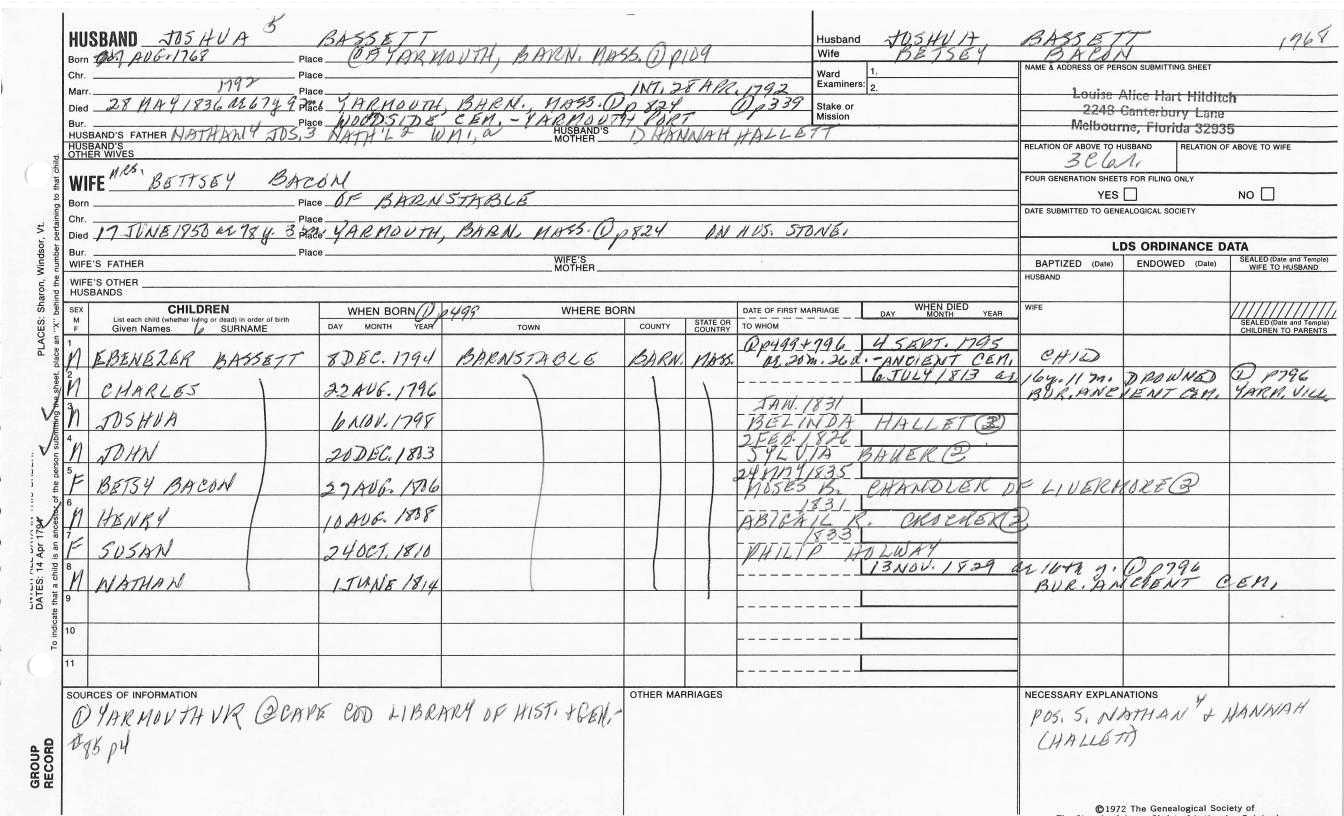 HUSBAND JOSHUA 5 BASSETT
Born AUG. 1768 Place YARMOUTH, BARN. MASS. ① p109
Chr. Place
Marr. 1792 Place INT. 28 APR. 1792
Died 28 MAY 1836 ae 67 y 9 Place YARMOUTH, BARN., MASS. ① p 824 ① p 339
Bur. Place WOODSIDE CEM. - YARMOUTH PORT
HUSBAND'S FATHER NATHAN 4 JOS. 3 NATH'L 2 WM. HUSBAND'S MOTHER HANNAH HALLETT
HUSBAND'S OTHER WIVES
Husband JOSHUA BASSETT 1768
Wife BETSEY BACON
Ward Examiners: 1.
2.
Stake or Mission
NAME & ADDRESS OF PERSON SUBMITTING SHEET
Louise Alice Hart Hilditch
2248 Canterbury Lane
Melbourne, Florida 32935
RELATION OF ABOVE TO HUSBAND RELATION OF ABOVE TO WIFE
FOUR GENERATION SHEETS FOR FILING ONLY
YES NO
DATE SUBMITTED TO GENEALOGICAL SOCIETY
WIFE MRS. BETTSEY BACON
Born Place OF BARNSTABLE
Chr. Place
Died 17 JUNE 1850 ae 78 y. Place YARMOUTH, BARN. MASS. ① p824 ON HUS. STONE.
Bur. Place
WIFE'S FATHER WIFE'S MOTHER
WIFE'S OTHER HUSBANDS
LDS ORDINANCE DATA
BAPTIZED (Date) ENDOWED (Date) SEALED (Date and Temple) WIFE TO HUSBAND
HUSBAND
WIFE
SEALED (Date and Temple) CHILDREN TO PARENTS
SEX M F
CHILDREN
List each child (whether living or dead) in order of birth
Given Names SURNAME
WHEN BORN ① p499
DAY MONTH YEAR
WHERE BORN
TOWN COUNTY STATE OR COUNTRY
DATE OF FIRST MARRIAGE
TO WHOM
WHEN DIED
DAY MONTH YEAR
1 M EBENEZER BASSETT 8 DEC. 1794 BARNSTABLE BARN. MASS. ① p499+796 4 SEPT. 1795
ae 20 m. 26 d. - ANCIENT CEM. CHILD
2 M CHARLES 22 AUG. 1796 6 JULY 1813 ae 16 y. 11 m. DROWNED ① P796
BUR. ANCIENT CEM. YARM. VILL
3 M JOSHUA 6 NOV. 1798 JAN. 1831
BELINDA HALLET ②
4 M JOHN 20 DEC. 1803 2 FEB. 1826
SYLVIA BAKER ②
5 F BETSY BACON 27 AUG. 1806 24 MAY 1835
MOSES B. CHANDLER OF LIVERMORE ②
6 M HENRY 10 AUG. 1808 1831
ABIGAIL R. CROCKER ②
7 F SUSAN 24 OCT. 1810 1833
PHILIP HOLWAY
8 M NATHAN 1 JUNE 1814 13 NOV. 1829 ae 16th y. ① p796
BUR. ANCIENT CEM.
9
10
11
SOURCES OF INFORMATION
① YARMOUTH VR ② CAPE COD LIBRARY OF HIST. + GEN. -
#85 p4
OTHER MARRIAGES
NECESSARY EXPLANATIONS
POS. S. NATHAN 4 + HANNAH
(HALLETT)
©1972 The Genealogical Society of
GROUP RECORD
To indicate that a child is an ancestor of the person submitting the sheet, place an "X" behind the number pertaining to that child.
DATES: 14 Apr 1794
PLACES: Sharon, Windsor, Vt.